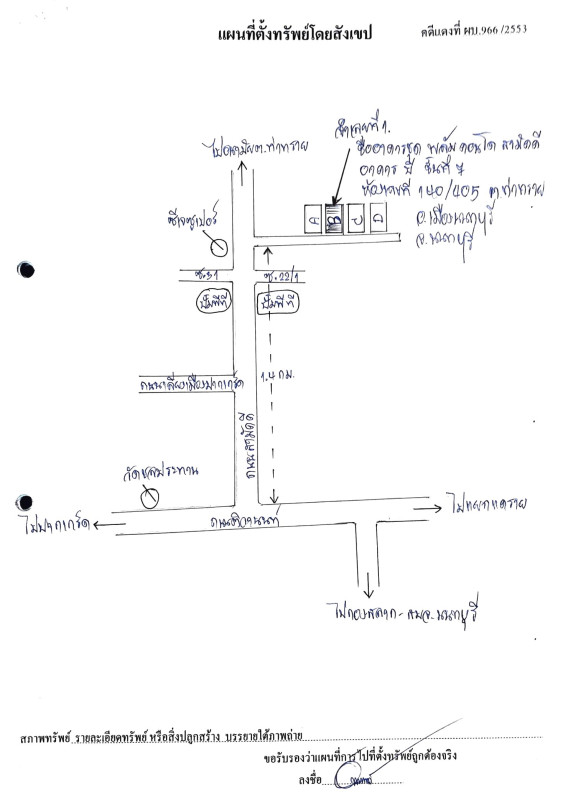 แผนที่ตั้งทรัพย์โดยสังเขป
คดีแดงที่ ผบ.966/2553
จำเลยที่ 1.
ชื่ออาคารชุด พลัม คอนโด สามัคคี
อาคาร บี ชั้นที่ 7
ห้องเลขที่ 140/405 ต.ท่าทราย
อ.เมืองนนทบุรี
จ.นนทบุรี
ท่าทราย
A B C D
ซ.31
ซ.22/1
ปั๊มพีที
ปั๊มพีที
ถนนเลี่ยงเมืองปากเกร็ด
1.4 กม.
ถนนสามัคคี
วัดชลประทาน
ไปปากเกร็ด
ถนนติวานนท์
ไปแยกแคราย
ไปกองสลาก - สนจ.นนทบุรี
สภาพทรัพย์ รายละเอียดทรัพย์ หรือสิ่งปลูกสร้าง บรรยายใต้ภาพถ่าย
ขอรับรองว่าแผนที่การไปที่ตั้งทรัพย์ถูกต้องจริง
ลงชื่อ